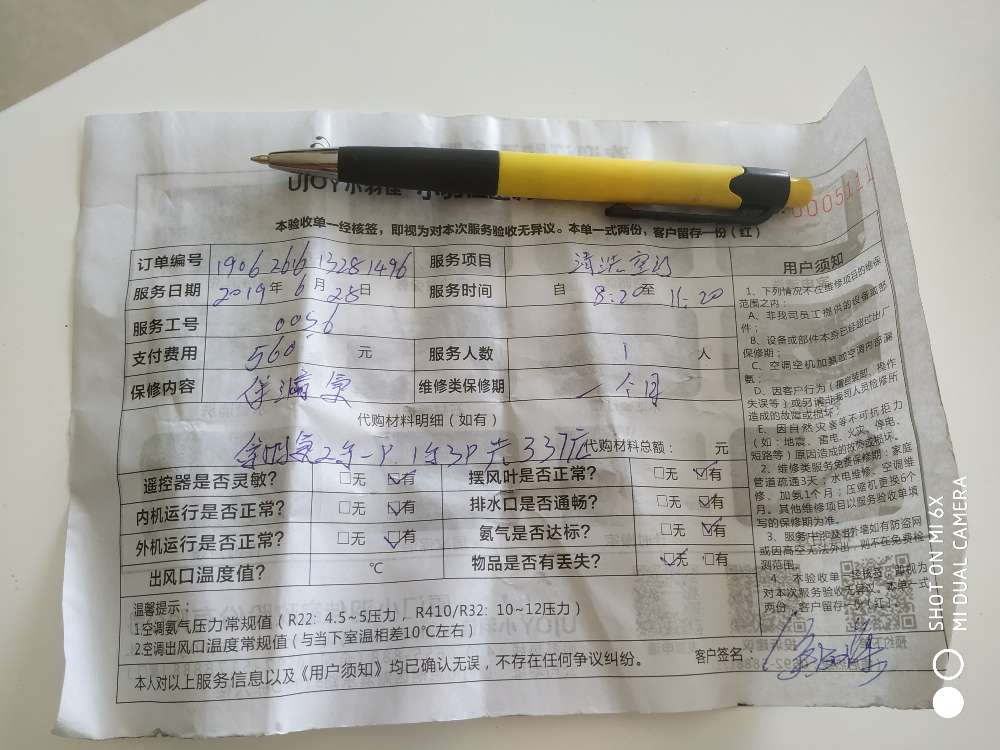 UJOY小羽佳
0005111
本验收单一经核签，即视为对本次服务验收无异议。本单一式两份，客户留存一份（红）
订单编号 1906 2616 13281496 服务项目 清洗空调
服务日期 2019年6月28日 服务时间 自8:20至11:20
服务工号 0056
支付费用 560 元 服务人数 1 人
保修内容 维修类保修期 一个月
代购材料明细（如有）
2台一P.1台3P共337 代购材料总额： 元
遥控器是否灵敏？ □无 ☑有 摆风叶是否正常？ □无 ☑有
内机运行是否正常？ □无 ☑有 排水口是否通畅？ □无 ☑有
外机运行是否正常？ □无 ☑有 氨气是否达标？ □无 ☑有
出风口温度值？ ℃ 物品是否有丢失？ ☑无 □有
温馨提示：
1.空调氨气压力常规值（R22: 4.5~5压力，R410/R32: 10~12压力）
2.空调出风口温度常规值（与当下室温相差10℃左右）
本人对以上服务信息以及《用户须知》均已确认无误，不存在任何争议纠纷。
客户签名
用户须知
1、下列情况不在维修项目的维保
范围之内：
A、非我司员工提供的设备或部
件；
B、设备或部件本身已经超过出厂
保修期；
C、空调空机加氨或空调内漏漏
氨；
D、因客户行为（擅自装卸、操作
失误等）或另请非我司人员检修所
造成的故障或损坏；
E、因自然灾害等不可抗拒力
（如：地震、雷电、火灾、停电、
短路等）原因造成的故障或损坏。
2、维修类服务免费保修期：家庭
管道疏通3天；水电维修、空调维
修、加氨1个月；压缩机更换6个
月。其他维修项目以服务验收单填
写的保修期为准。
3、服务中涉及当外墙如有防盗网
或因高空无法外出，则不在免费检
测范围。
4、本验收单一经核签，即视为
对本次服务验收无异议。本单一式
两份，客户留存一份（红）
SHOT ON MI 6X
MI DUAL CAMERA